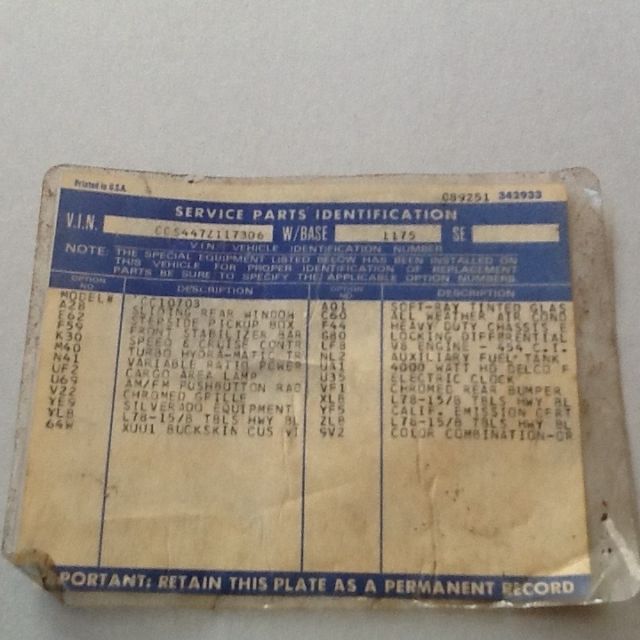 Printed in U.S.A.
089251 343933
SERVICE PARTS IDENTIFICATION
V.I.N. CCS447Z117306 W/BASE 1175 SE
V.I.N. VEHICLE IDENTIFICATION NUMBER
NOTE: THE SPECIAL EQUIPMENT LISTED BELOW HAS BEEN INSTALLED ON
THIS VEHICLE. FOR PROPER IDENTIFICATION OF REPLACEMENT
PARTS BE SURE TO SPECIFY THE APPLICABLE OPTION NUMBERS.
OPTION NO DESCRIPTION OPTION NO DESCRIPTION
MODEL# CC10703 A01 TINTED GLAS
A28 SLIDING REAR WINDOW C60
E62 PICKUP BOX F44 HEAVY DUTY CHASSIS E
F59 STABILIZER BAR G80 LOCKING DIFFERENTIAL
K30 SPEED CONTR ENGINE
M40 TURBO HYDRA-MATIC TR NL2 AUXILIARY FUEL TANK
N41 VARIABLE RATIO POWER UA1 4000 WATT HD DELCO F
U35 ELECTRIC CLOCK
U69 AM/FM PUSHBUTTON RAD VF1 CHROMED REAR BUMPER
V22 CHROMED GRILLE XL8 L78-15/B TBLS HWY BL
SILVERADO EQUIPMENT YF5 CALIF. EMISSION CERT
YL8 L78-15/B TBLS HWY BL ZL8 L78-15/B TBLS HWY BL
64W BUCKSKIN CUS VI 9V2 COLOR COMBINATION-OR
PORTANT: RETAIN THIS PLATE AS A PERMANENT RECORD